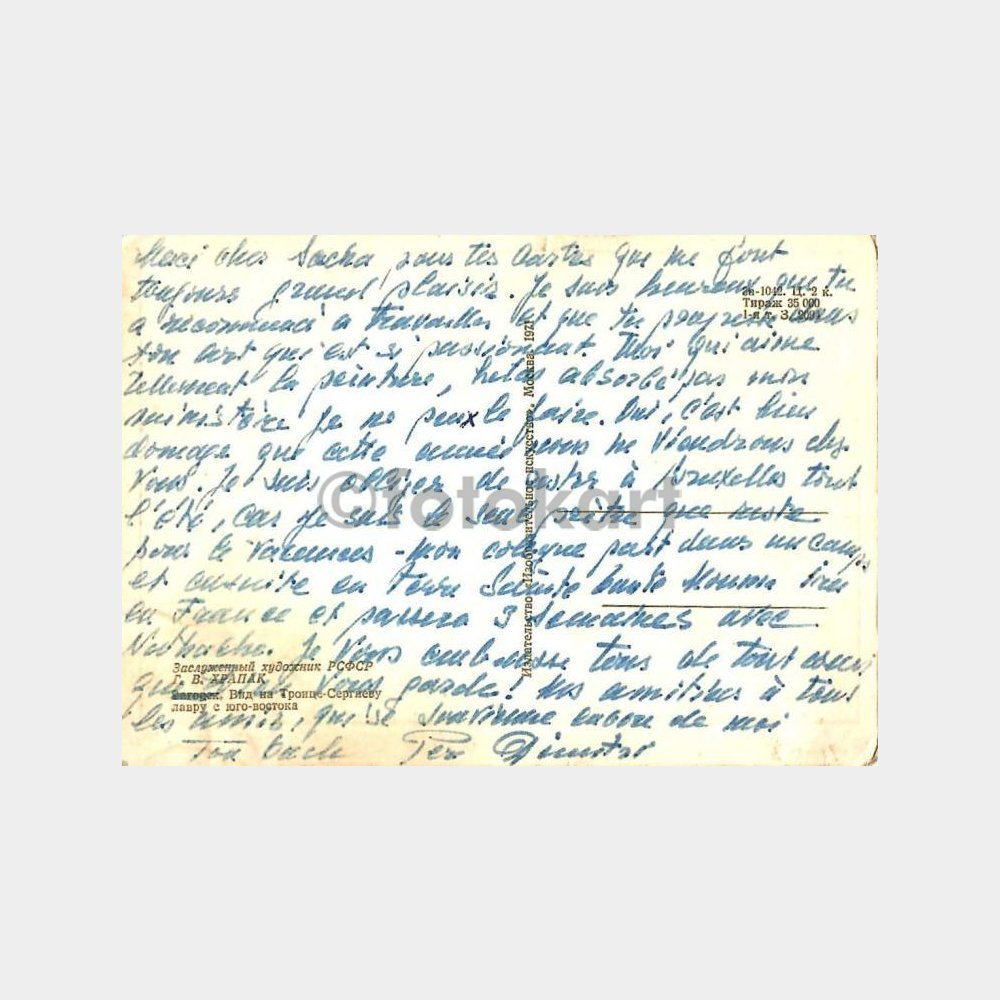 Merci cher Sacha pour tes cartes que me font
toujours grand plaisir. Je suis heureux que tu
a recommencé à travailler et que tu progresse dans
ton art qui est si passionnant. Moi qui aime
tellement la peinture, hélas absorbé par mon
ministère je ne peux le faire. Oui, c'est bien
domage que cette année nous ne viendrons chez
vous. Je suis obliger de rester à Bruxelles tout
l'été, car je suis le seul prêtre que reste
pour le vacances - Mon collègue part dans un camp
et ensuite en Terre Sainte
en France et passera 3 semaines avec
Je vous embrasse tous de tout
que vous garde! Mes amitiées à tous
les amis, qui se souvienne encore de moi
Père Dimitri
За-1042. Ц. 2 к.
Тираж 35 000
1-я т. З. 2091
Издательство «Изобразительное искусство». Москва. 1971
Заслуженный художник РСФСР
Г. В. ХРАПАК
Загорск. Вид на Троице-Сергиеву
лавру с юго-востока
©fotokart